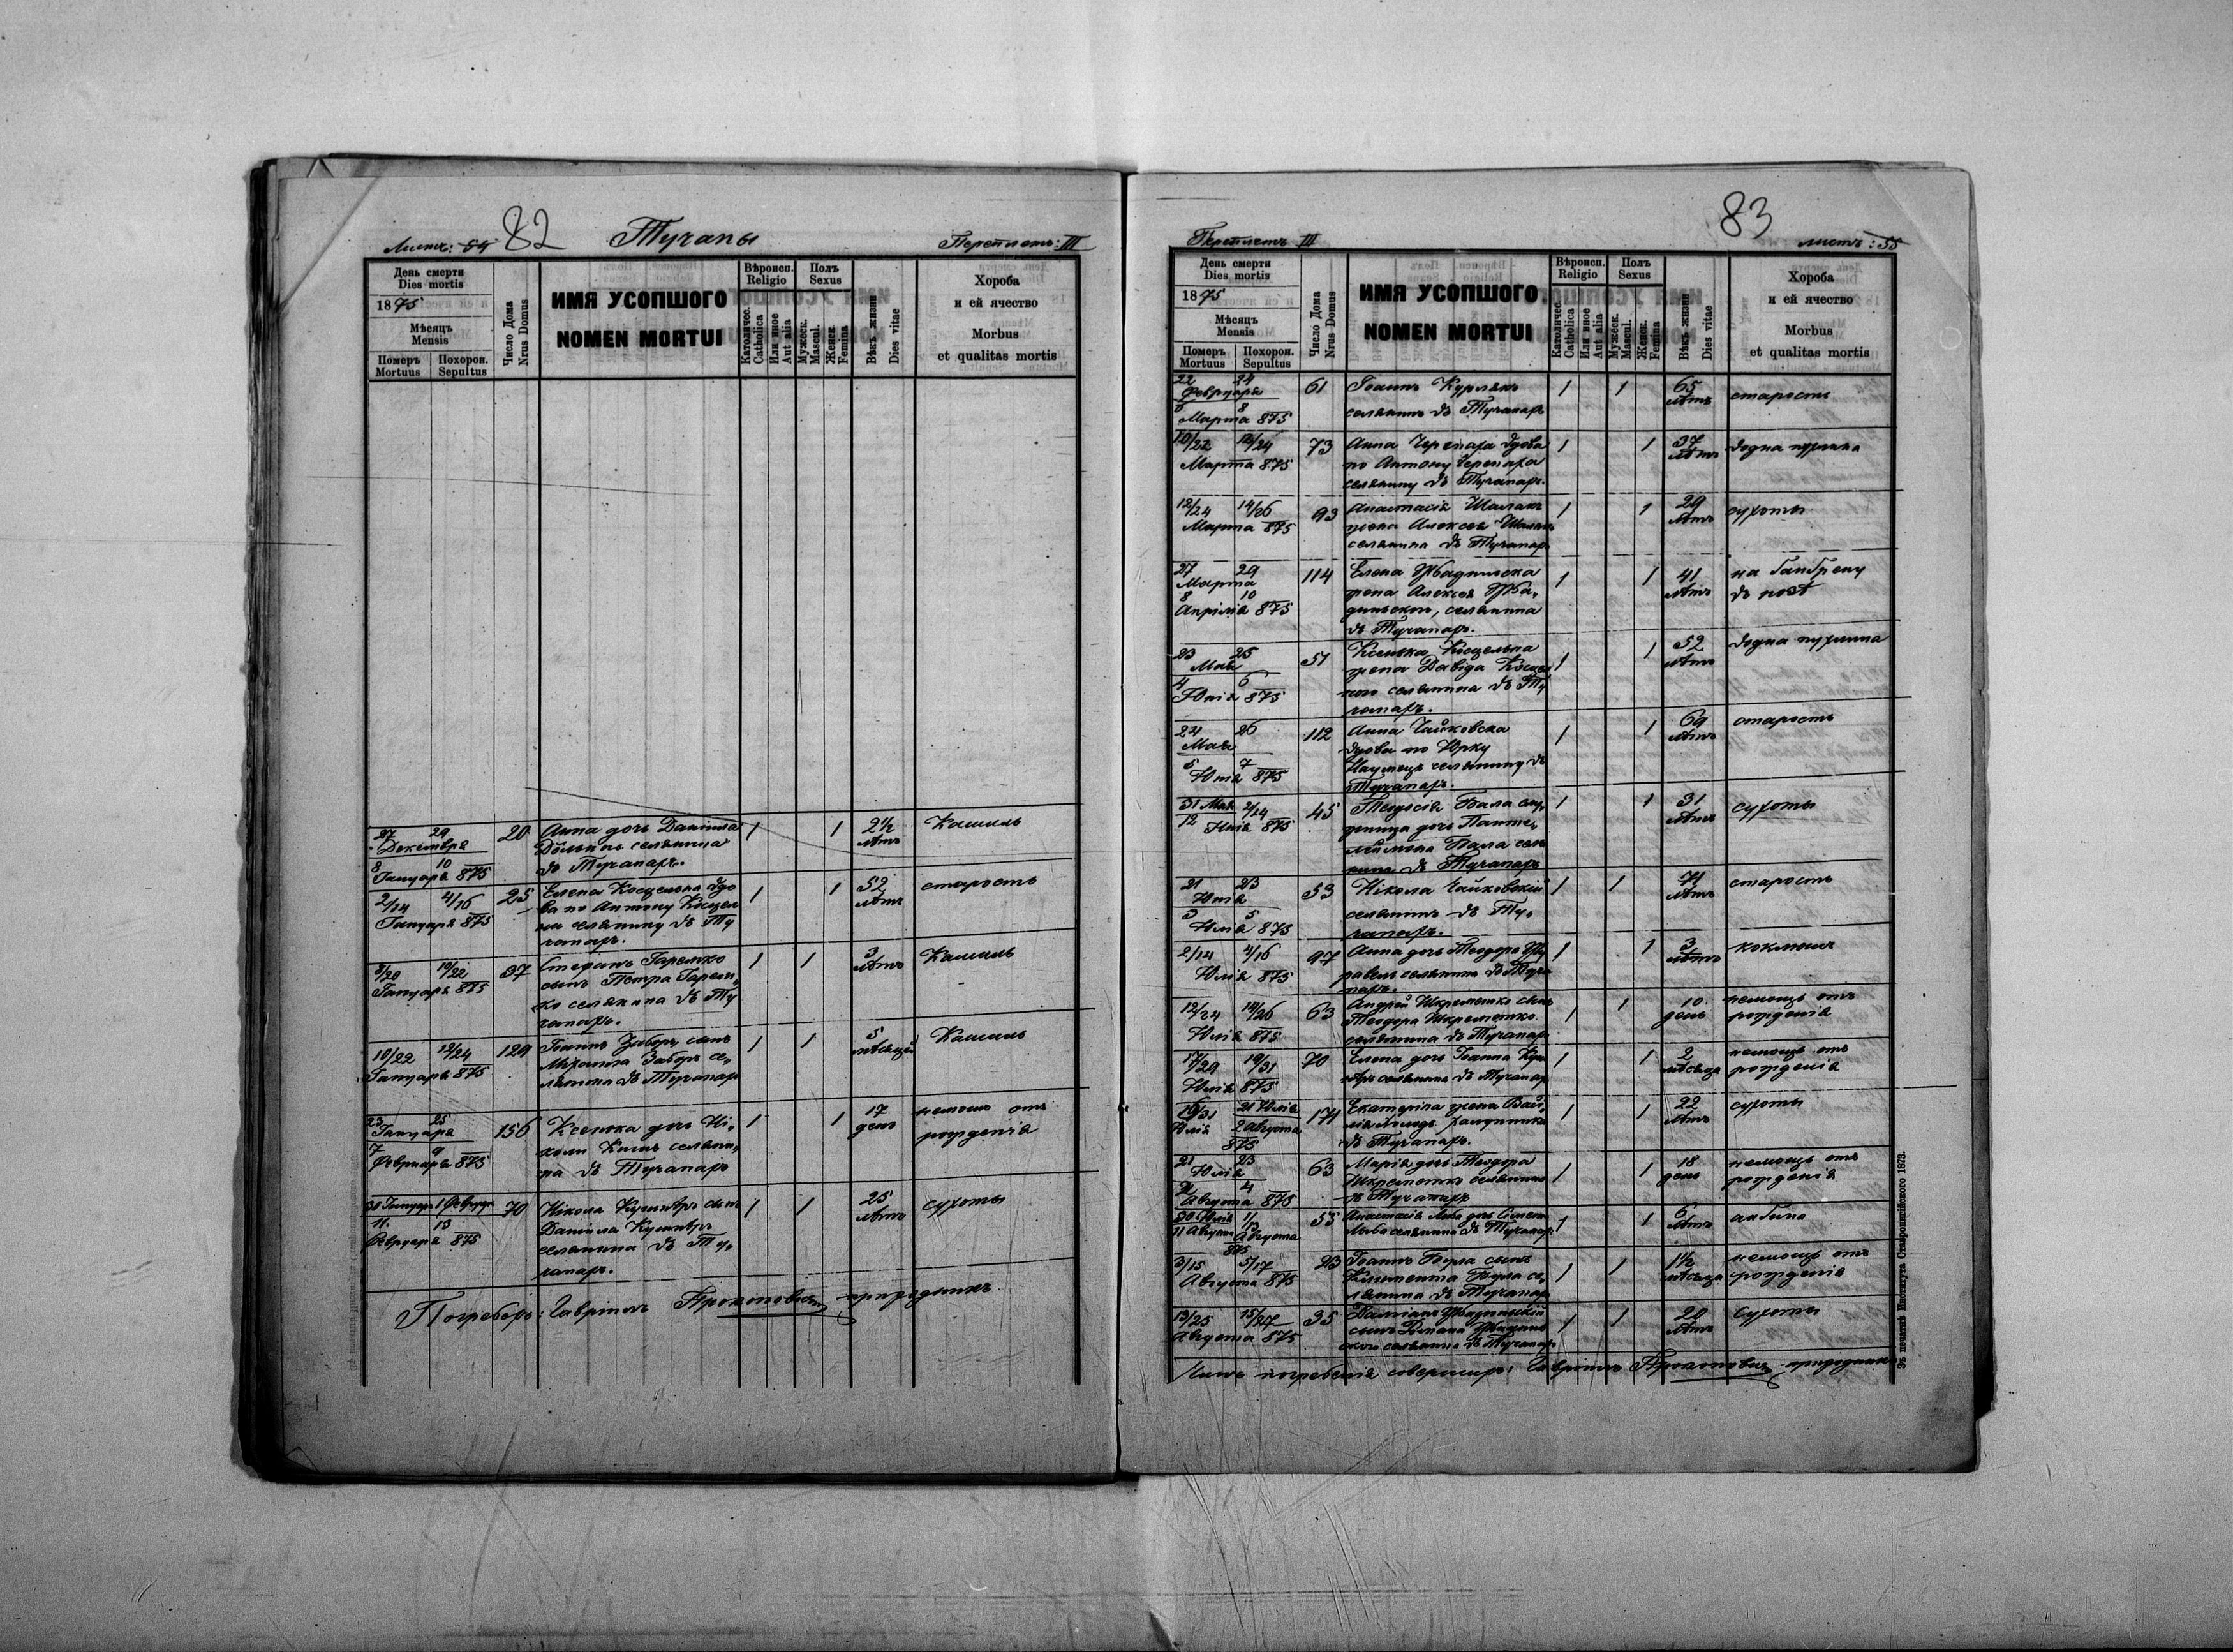 Листъ: 54
82
Тучапы
Переплетъ: III
День смерти
Dies mortis
1875
Мѣсяцъ
Mensis
Померъ
Mortuus
Похорон.
Sepultus
Число Дома
Nrus Domus
ИМЯ УСОПШОГО
NOMEN MORTUI
Вѣроисп.
Religio
Католичес.
Catholica
Или иное
Aut alia
Полъ
Sexus
Мужеск.
Mascul.
Женск.
Femina
Вѣкъ жизни
Dies vitae
Хороба
и ей ячество
Morbus
et qualitas mortis
27 29
Декемвра
8 10
Януара 875
20
Анна дочь Даніила
селянина
въ Тучапахъ.
1 1
2½
лѣтъ
Кашель
2/14 4/16
Януара 875
25
Елена Косцельна вдо
ва по Антону Косцел
селянину въ Ту
чапахъ.
1 1
52
лѣтъ
старость
8/20 10/22
Януара 875
37
Стефанъ
сынъ Петра
ко селянина въ Ту
чапахъ.
1 1
3
лѣтъ
Кашель
10/22 12/24
Януара 875
129
Іоаннъ Заборъ сынъ
Михаила Заборъ се,
лянина въ Тучапах
1 1
5
мѣсяцей
Кашель
23 25
Януара
7 9
Февруара 875
156
Ксенька дочь Ні,
коли селяни,
на въ Тучапахъ
1 1
17
день
немощь отъ
рожденія
30 Януара 1 Февруа
11 13
Февруара 875
70
Нікола Кушнѣръ сынъ
Даніила Кушнѣръ
селянина въ Ту,
чапахъ.
1 1
25
лѣтъ
сухоты
Погребохъ: Гавріилъ Прокоповичъ приходникъ
83
Переплетъ III
листъ: 55
День смерти
Dies mortis
1875
Мѣсяцъ
Mensis
Померъ
Mortuus
Похорон.
Sepultus
Число Дома
Nrus Domus
ИМЯ УСОПШОГО
NOMEN MORTUI
Вѣроисп.
Religio
Католичес.
Catholica
Или иное
Aut alia
Полъ
Sexus
Мужеск.
Mascul.
Женск.
Femina
Вѣкъ жизни
Dies vitae
Хороба
и ей ячество
Morbus
et qualitas mortis
22 24
Февруара
6 8
Марта 875
61
Іоаннъ Курлякъ
селянинъ въ Тучапахъ
1 1
65
лѣтъ
старость
10/22 12/24
Марта 875
73
Анна Черепаха вдова
по Антону Черепаха
селянину въ Тучапахъ.
1 1
37
лѣтъ
водна пухлина
12/24 14/26
Марта 875
93
Анастасія Шалакъ
жена Алексея Шалакъ
селянина въ Тучапах
1 1
29
лѣтъ
сухоты
27 29
Марта
8 10
Апріля 875
114
Елена
жена Алексея
селянина
въ Тучапахъ.
1 1
41
лѣтъ
на
въ
23 25
Мая
4 6
Юнія 875
51
Ксенька Косцельна
жена Давида Косцел
ного селянина въ Ту
чапахъ.
1 1
52
лѣтъ
водна пухлина
24 26
Мая
5 7
Юнія 875
112
Анна Чайковска
вдова по Юрку
селянину въ
Тучапахъ.
1 1
69
лѣтъ
старость
31 Мая 2/14
12 Юнія 875
45
Теодосія Бала слу,
жница дочь Панте,
леймона Бала селя
нина въ Тучапахъ
1 1
31
лѣтъ
сухоты
21 23
Юнія
3 5
Юлія 875
53
Нікола Чайковскій
селянинъ въ Ту,
чапахъ.
1 1
71
лѣтъ
старость
2/14 4/16
Юлія 875
97
Анна дочь Теодора Жу
равель селянина въ Туча
пахъ.
1 1
3
лѣтъ
коклюшъ
12/24 14/26
Юлія 875
63
Андрей Шкреметко сынъ
Теодора Шкреметко
селянина въ Тучапах
1 1
10
день
немощь отъ
рожденія
17/29 19/31
Юлія 875
70
Елена дочь Іоанна Куш
нѣръ селянина въ Тучапах
1 1
2
мѣсяца
немощь отъ
рожденія
19/31 21 Юлія
Юлія 2 Августа
875
171
Екатерина жена
въ Тучапахъ.
1 1
22
лѣтъ
сухоты
21 23
Юлія
2 4
Августа 875
63
Марія дочь Теодора
Шкреметко селянина
въ Тучапахъ
1 1
18
день
немощь отъ
рожденія
30 Юлія 1/13
11 Августа Августа
875
55
Анастасія дочь
селянина въ Тучапахъ
1 1
6
лѣтъ
ангина
3/15 5/17
Августа 875
23
Іоаннъ сынъ
Климента се,
лянина въ Тучапах
1 1
1½
мѣсяца
немощь отъ
рожденія
13/25 15/27
Августа 875
35
Даміанъ
сынъ Романа
ского селянина въ Тучапах
1 1
20
лѣтъ
Сухоты
погребенія совершихъ: Гавріилъ Прокоповичъ приходник
Зъ печатнѣ Института Ставропигійского 1873.